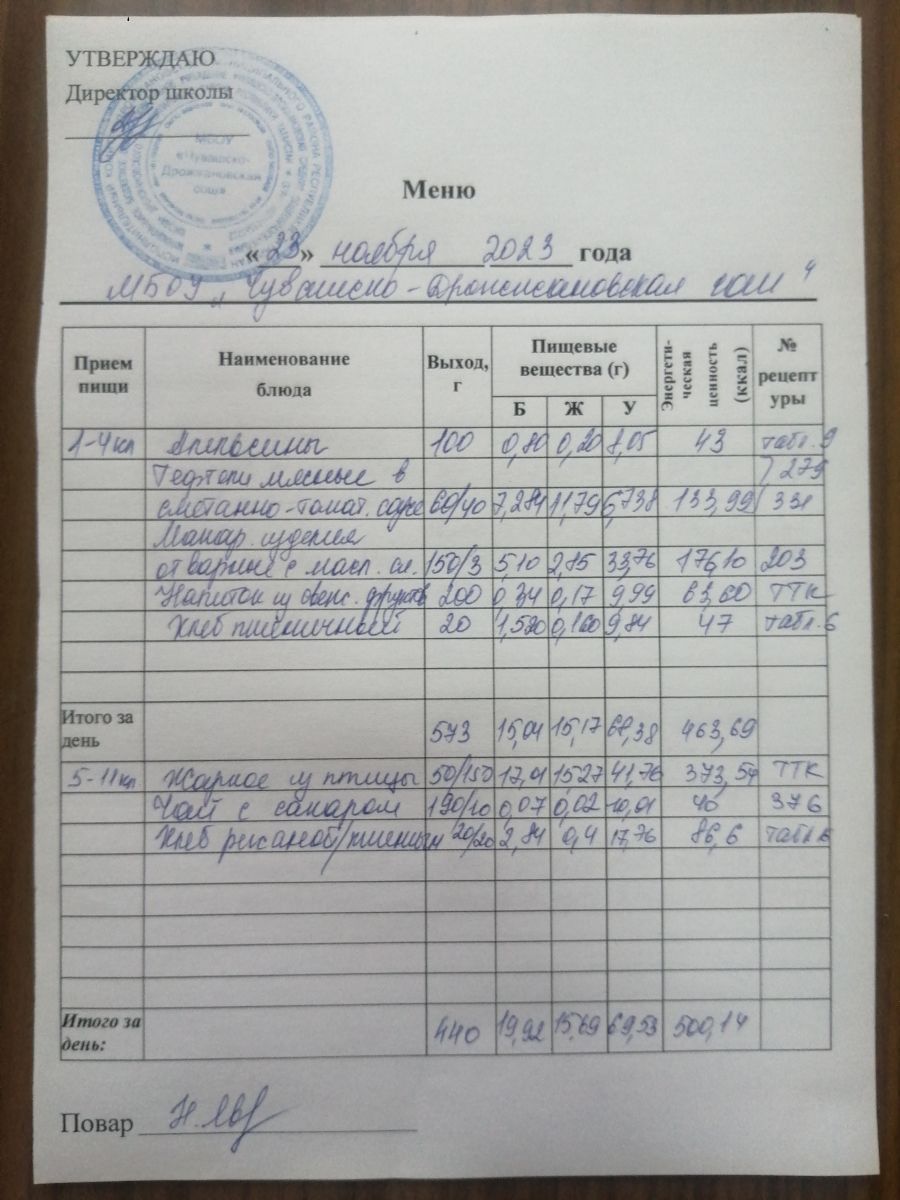 УТВЕРЖДАЮ
Директор школы
МБОУ
«Чувашско-
Дрожжановская
сош»
Меню
«23» ноября 2023 года
МБОУ „Чувашско-Дрожжановская сош"
Прием пищи Наименование блюда Выход, г Пищевые вещества (г) Энергети-ческая ценность (ккал) № рецептуры
Б Ж У
1-4 кл Апельсины 100 0,80 0,20 8,05 43 табл. 9
Тефтели мясные в 279
сметанно-томат. соусе 60/40 7,284 11,79 6,738 133,99 331
Макар. изделия
отварные с масл. сл. 150/3 5,10 2,85 33,76 176,10 203
Напиток из свеж. фруктов 200 0,34 0,17 9,99 63,60 ТТК
Хлеб пшеничный 20 1,520 0,160 9,84 47 табл. 6
Итого за день 573 15,04 15,17 68,38 463,69
5-11 кл Жаркое из птицы 50/150 17,01 15,27 41,76 373,54 ТТК
Чай с сахаром 190/10 0,07 0,02 10,01 40 376
Хлеб ржаной/пшеничный 20/20 2,84 0,4 17,76 86,6 табл. 6
Итого за день: 440 19,92 15,69 69,53 500,14
Повар